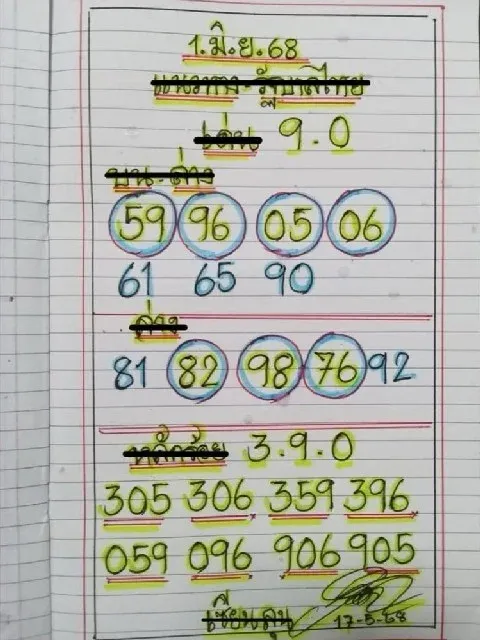 1.มิ.ย.68
แนวทาง-รัฐบาลไทย
เด่น 9.0
บน-ล่าง
59 96 05 06
61 65 90
ล่าง
81 82 98 76 92
หลักร้อย 3.9.0
305 306 359 396
059 096 906 905
เซียนลุน
17-5-68